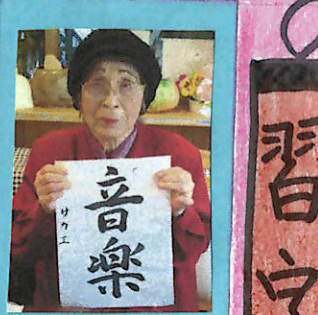 音楽
サカエ
習字